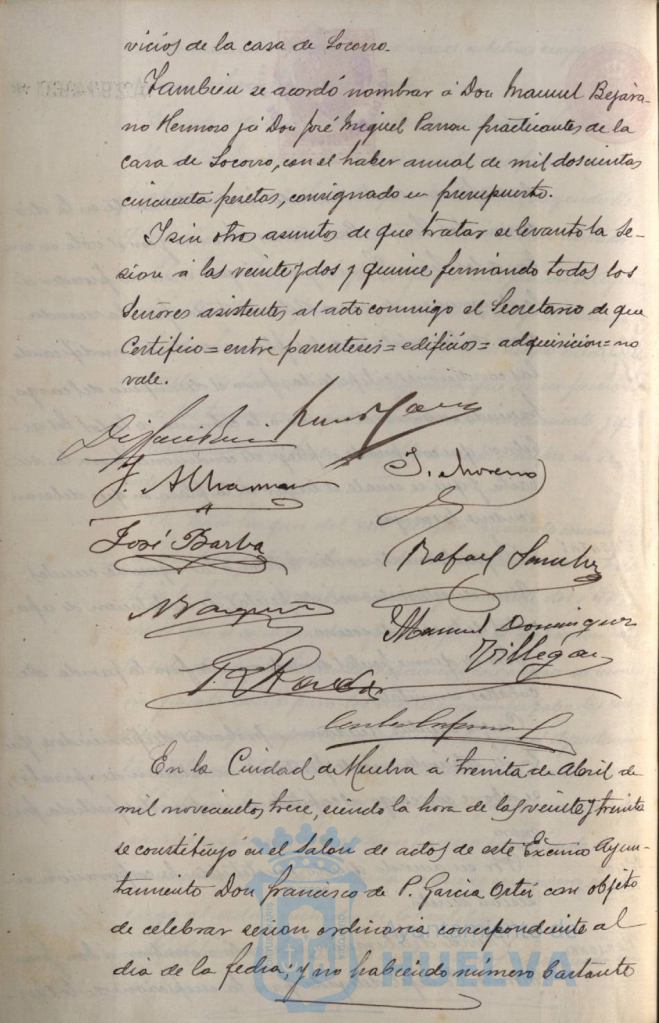 vicios de la casa de Socorro.
Tambien se acordó nombrar á Don Manuel Bejara-
no Hermoso y á Don José Miguel Parron practicantes de la
casa de Socorro, con el haber anual de mil doscientas
cincuenta pesetas, consignado en presupuesto.
Y sin otros asuntos de que tratar se levantó la Se-
sion á las veinte y dos y quince firmando todos los
Señores asistentes al acto conmigo el Secretario de que
Certifico = entre parenteses = edificios = adquisicion = no
vale.
J. Alhama
J. Moreno
José Barba
Rafael Sanchez
N Vazquez
Manuel Dominguez
Villegas
En la Ciudad de Huelva á treinta de Abril de
mil novecientos trece, siendo la hora de las veinte y treinta
se constituyó en el Salon de actos de este Excmo Ayun-
tamiento Don Francisco de P. Garcia Ortiz con objeto
de celebrar sesion ordinaria correspondiente al
dia de la fecha; y no habiendo número bastante
HUELVA